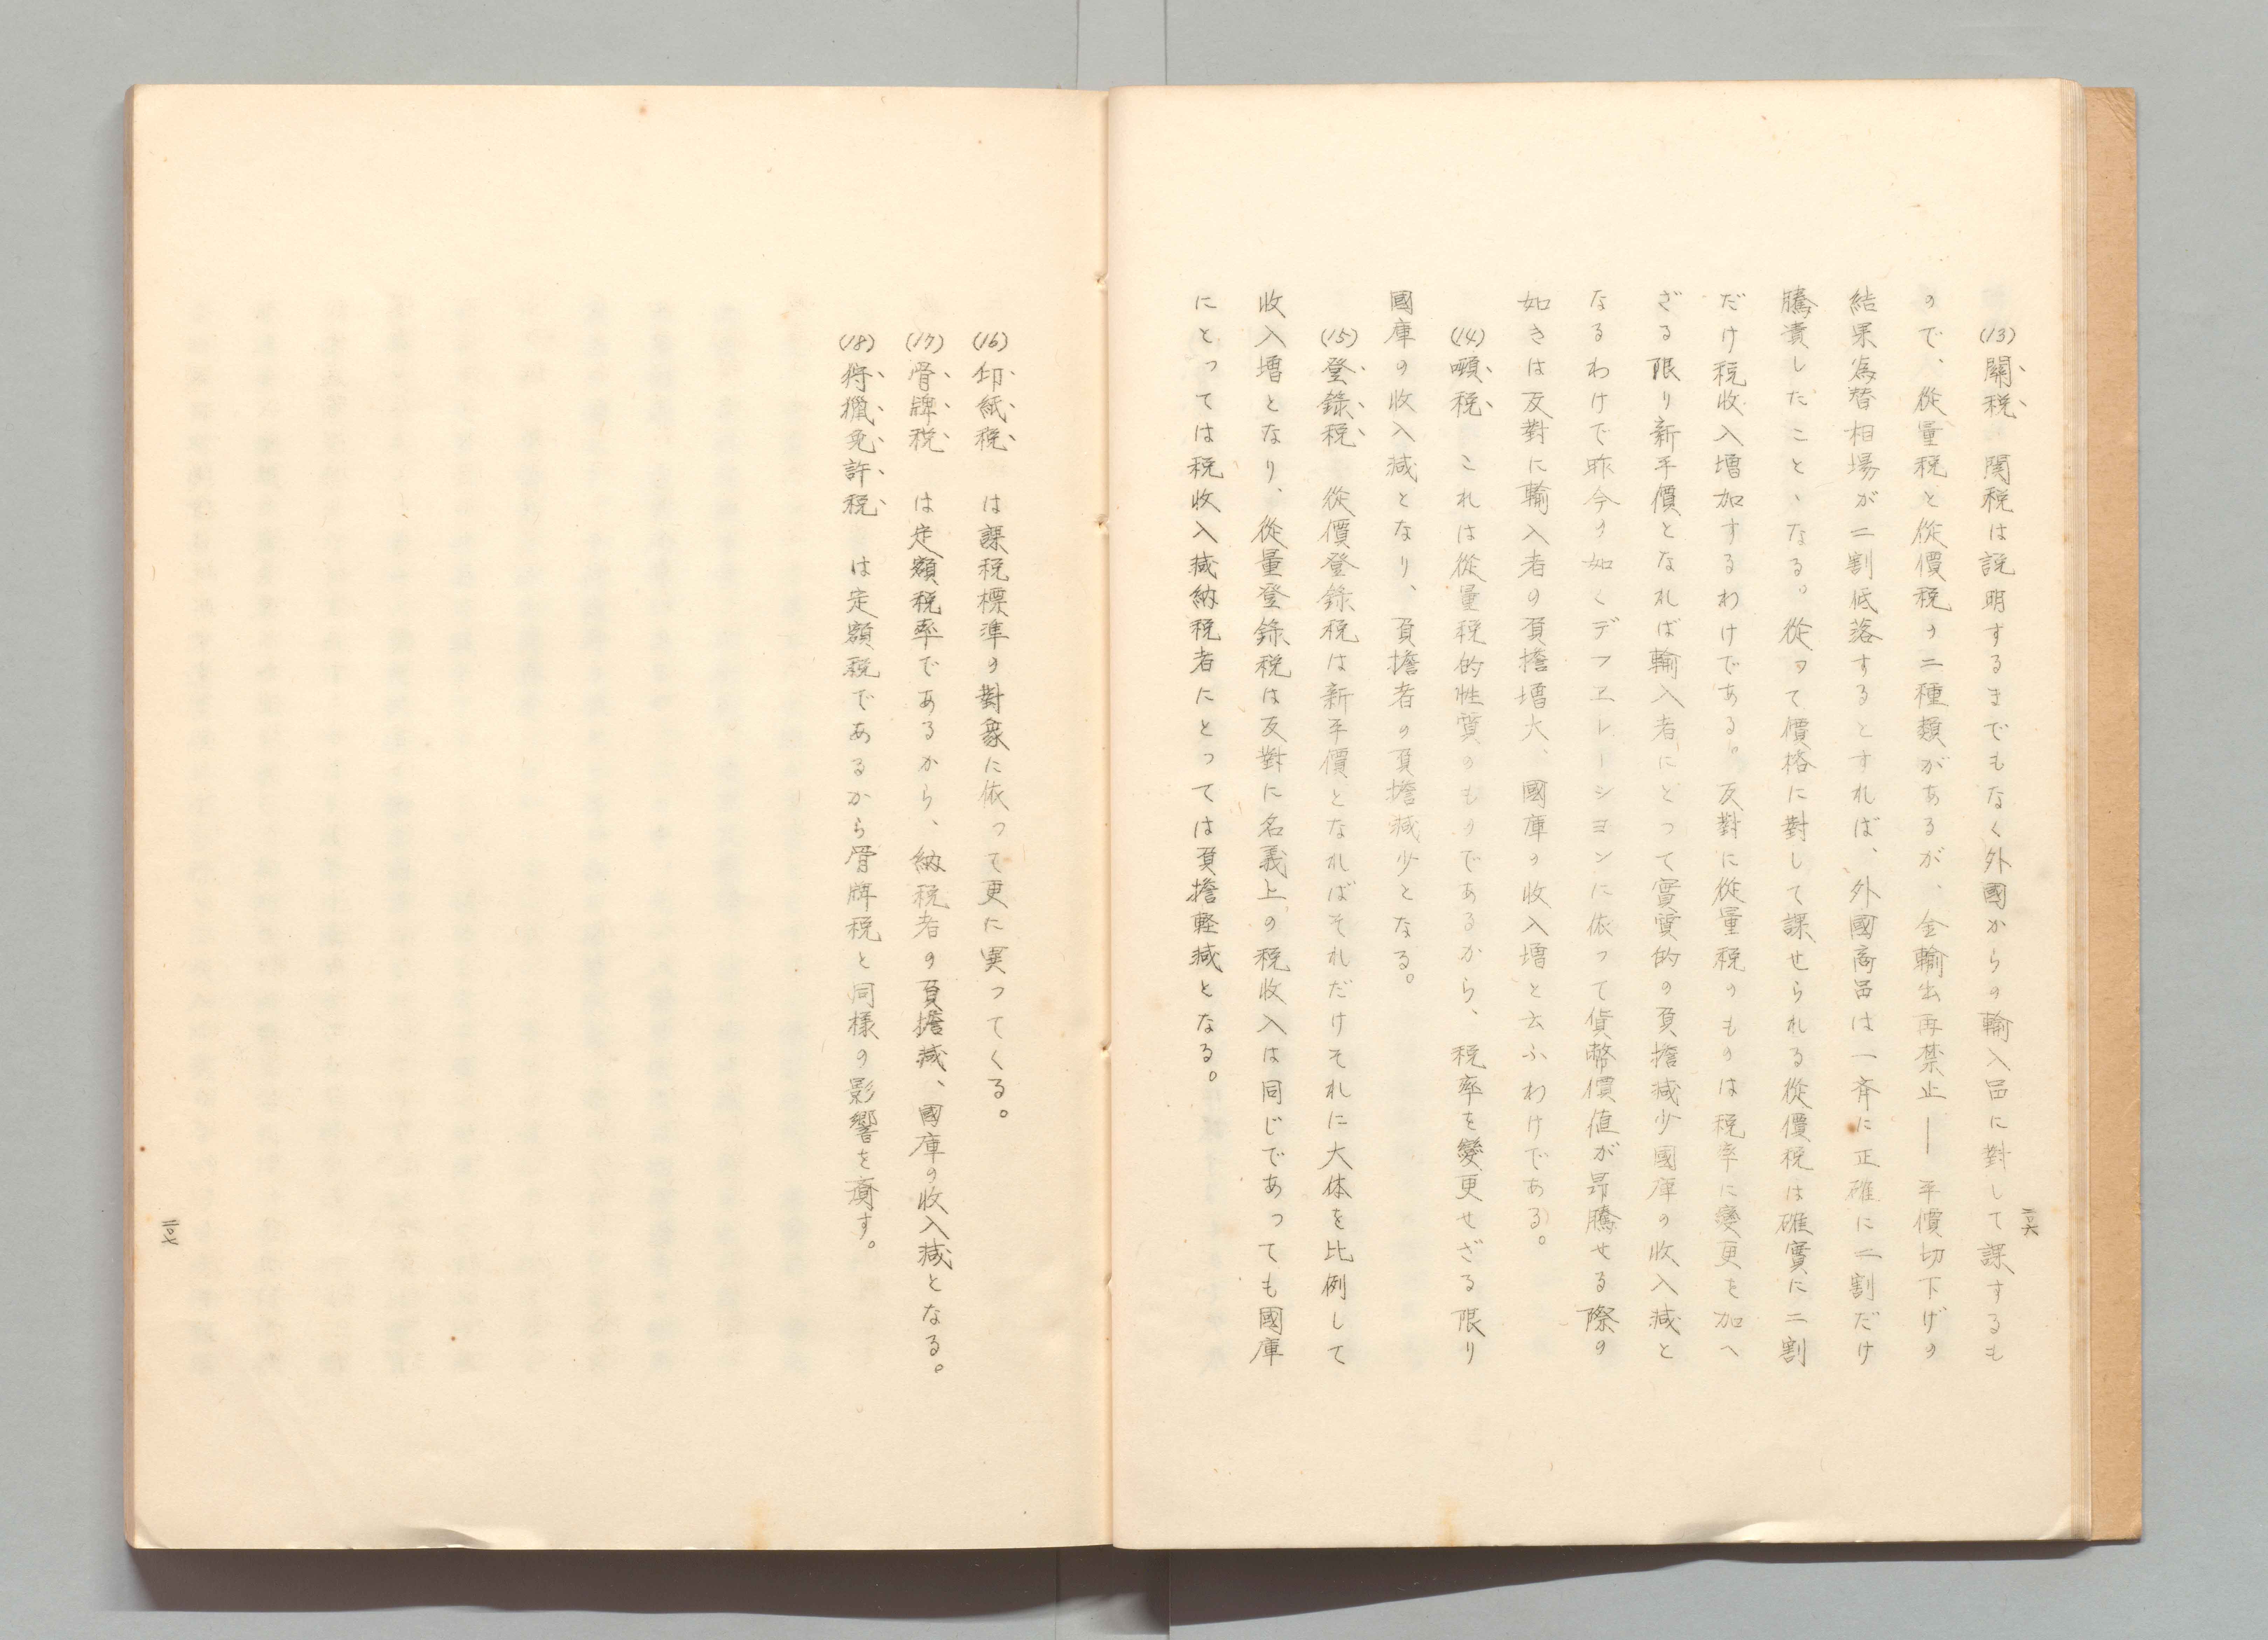 (13)關税　関税は説明するまでもなく外國からの輸入品に對して課するも
ので、從量税と從價税の二種類があるが、金輸出再禁止——平價切下げの
結果為替相場が二割低落するとすれば、外國商品は一斉に正確に二割だけ
騰貴したことゝなる。從って價格に對して課せられる從價税は確實に二割
だけ税収入増加するわけである。反對に從量税のものは税率に變更を加へ
ざる限り新平價となれば輸入者にとって實質的の負擔減少國庫の收入減と
なるわけで昨今の如くデフエレーシヨンに依って貨幣價値が昻騰せる際の
如きは反對に輸入者の負擔増大、國庫の收入増と云ふわけである。
(14)噸税　これは從量税的性質のものであるから、税率を變更せざる限り
國庫の收入減となり、負擔者の負擔減少となる。
(15)登錄税　從價登錄税は新平價となればそれだけそれに大体を比例して
收入増となり、從量登錄税は反對に名義上の税收入は同じであっても國庫
にとっては税收入減納税者にとっては負擔軽減となる。
二〇六
(16)印紙税　は課税標準の對象に依って更に異ってくる。
(17)骨牌税　は定額税率であるから、納税者の負擔減、國庫の收入減となる。
(18)狩獵免許税　は定額税であるから骨牌税と同様の影響を齎す。
二〇七